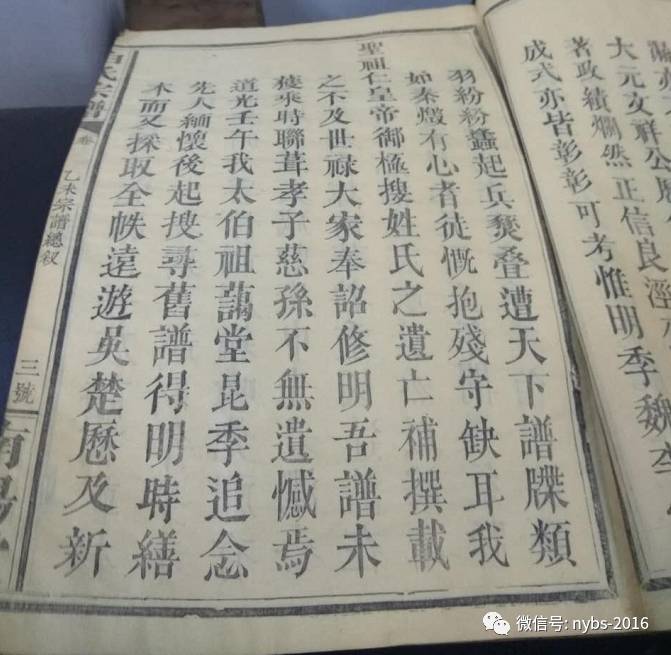 大元文祥公
著政績爛然正信良
成式亦皆彰彰可考惟明季魏李
羽紛紛蠭起兵燹叠遭天下譜牒類
如秦燬有心者徒慨抱殘守缺耳我
聖祖仁皇帝御極搜姓氏之遺亡補撰載
之不及世禄大家奉詔修明吾譜未
獲乘時聯葺孝子慈孫不無遺憾焉
道光壬午我太伯祖藹堂昆季追念
先人緬懷後起搜尋舊譜得明時繕
木而又採取全帙遠遊吳楚歷及新
氏宗譜
卷
乙未宗譜總叙
三號
南陽
微信号: nybs-2016